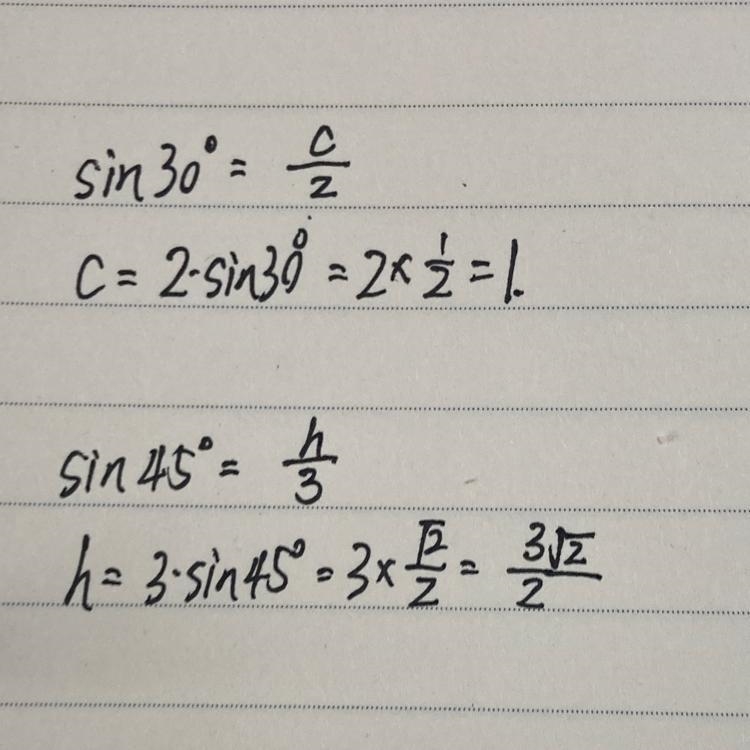 sin 30° = c/2
c = 2·sin30° = 2 × 1/2 = 1.
sin 45° = h/3
h = 3·sin45° = 3 × √2/2 = 3√2/2